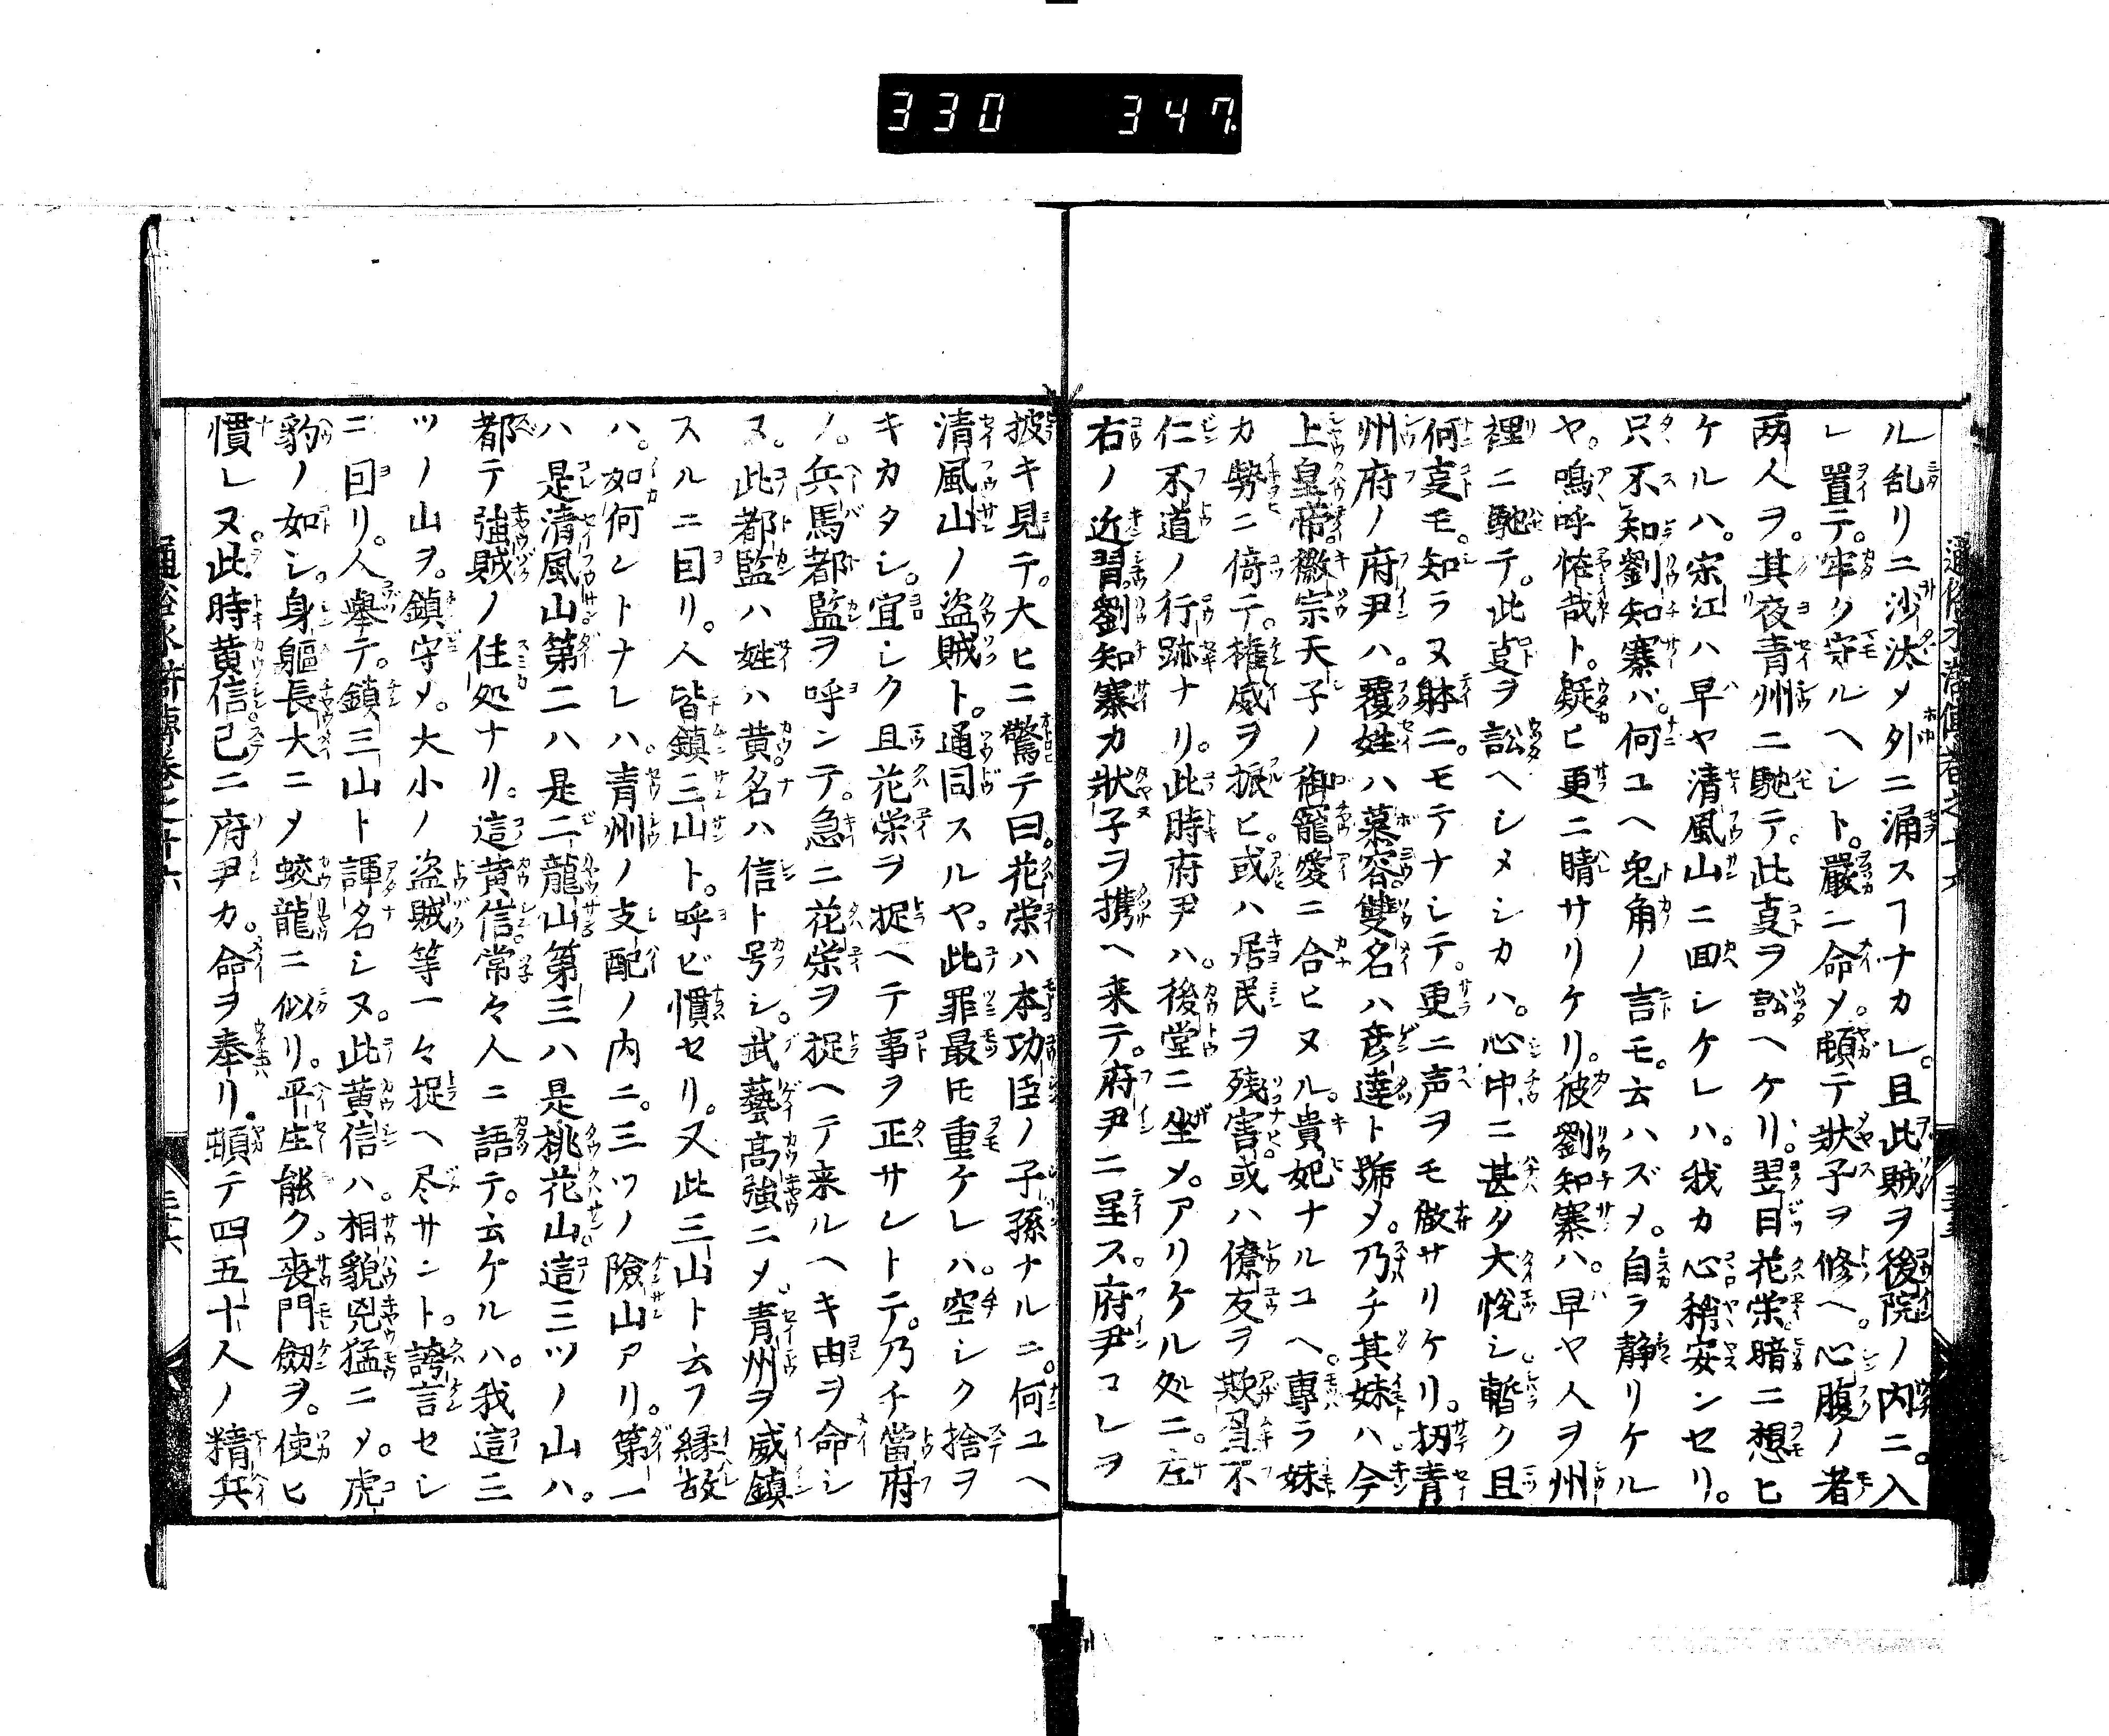 330 347
ル乱リニ沙汰メ外ニ涌スヿナカレ。且此賊ヲ後院ノ内ニ。入
レ置テ。牢ク守ルヘシト。嚴ニ命メ。頓テ狀子ヲ修ヘ。心腹ノ者
両人ヲ。其夜青州ニ馳テ。此㕝ヲ訟ヘケリ。翌日花栄暗ニ想ヒ
ケルハ。宋江ハ早ヤ清風山ニ回シケレハ。我カ心稍安ンセリ。
只不知劉知寨ハ。何ユヘ兎角ノ言モ。云ハズメ。自ラ静リケル
ヤ。鳴呼恠哉ト。疑ヒ更ニ晴サリケリ。彼劉知寨ハ。早ヤ人ヲ州
裡ニ馳テ。此㕝ヲ訟ヘシメシカハ。心中ニ甚タ大悦シ。暫ク且
何㕝モ。知ラヌ躰ニ。モテナシテ。更ニ声ヲモ做サリケリ。扨青
州府ノ府尹ハ。覆姓ハ慕容。雙名ハ彦達ト號メ。乃チ其妹ハ今
上皇帝。徽宗天子ノ御寵愛ニ合ヒヌル。貴妃ナルユヘ。專ラ妹
カ勢ニ倚テ。権威ヲ振ヒ。或ハ居民ヲ残害。或ハ僚友ヲ欺罔。不
仁不道ノ行跡ナリ。此時府尹ハ。後堂ニ坐メ。アリケル処ニ。左
右ノ近習。劉知寨カ狀子ヲ携ヘ来テ。府尹ニ呈ス。府尹コレヲ
披キ見テ。大ヒニ驚テ曰。花栄ハ本功臣ノ子孫ナルニ。何ユヘ
清風山ノ盗賊ト。通同スルヤ。此罪最モ重ケレハ。空シク捨ヲ
キカタシ。宜シク且花栄ヲ捉ヘテ事ヲ正サレトテ。乃チ當府
ノ。兵馬都監ヲ呼ンテ。急ニ花栄ヲ捉ヘテ来ルヘキ由ヲ命シ
ヌ。此都監ハ姓ハ黄。名ハ信ト号シ。武藝高強ニメ。青州ヲ威鎮
スルニ因リ。人皆鎮三山ト。呼ビ慣セリ。又此三山ト云フ縁故
ハ。如何ントナレハ。青州ノ支配ノ内ニ。三ツノ險山アリ。第一
ハ是清風山。第二ハ是二龍山。第三ハ是桃花山。這三ツノ山ハ。
都テ強賊ノ住処ナリ。這黄信常々人ニ語テ。云ケルハ。我這三
ツノ山ヲ。鎮守メ。大小ノ盗賊等一々捉ヘ尽サント。誇言セシ
ニ因リ。人舉テ。鎮三山ト諢名シヌ。此黄信ハ。相貌兇猛ニメ。虎
豹ノ如シ。身軀長大ニメ蛟龍ニ似リ。平生能ク。喪門劔ヲ。使ヒ
慣レヌ。此時黄信已ニ府尹カ。命ヲ奉リ。頓テ四五十人ノ精兵